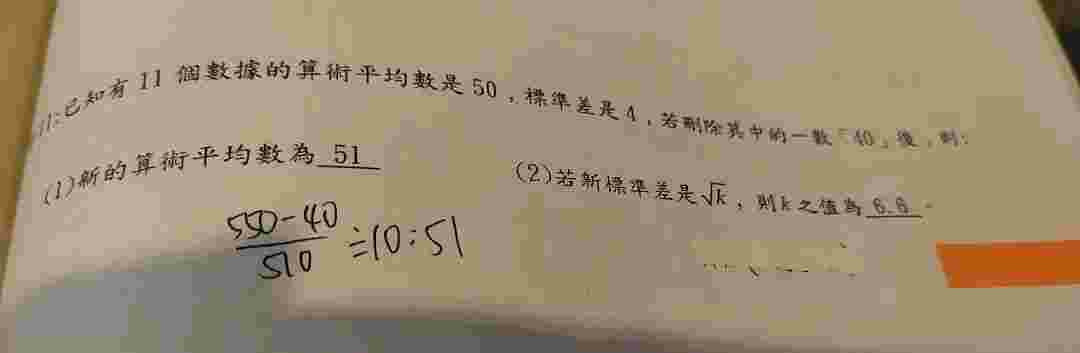 11:已知有 11 個數據的算術平均數是 50,標準差是 4,若刪除其中的一數「40」後,則:
(1)新的算術平均數為 51
(2)若新標準差是√k,則k之值為 6.6。
550-40
510
÷10=51